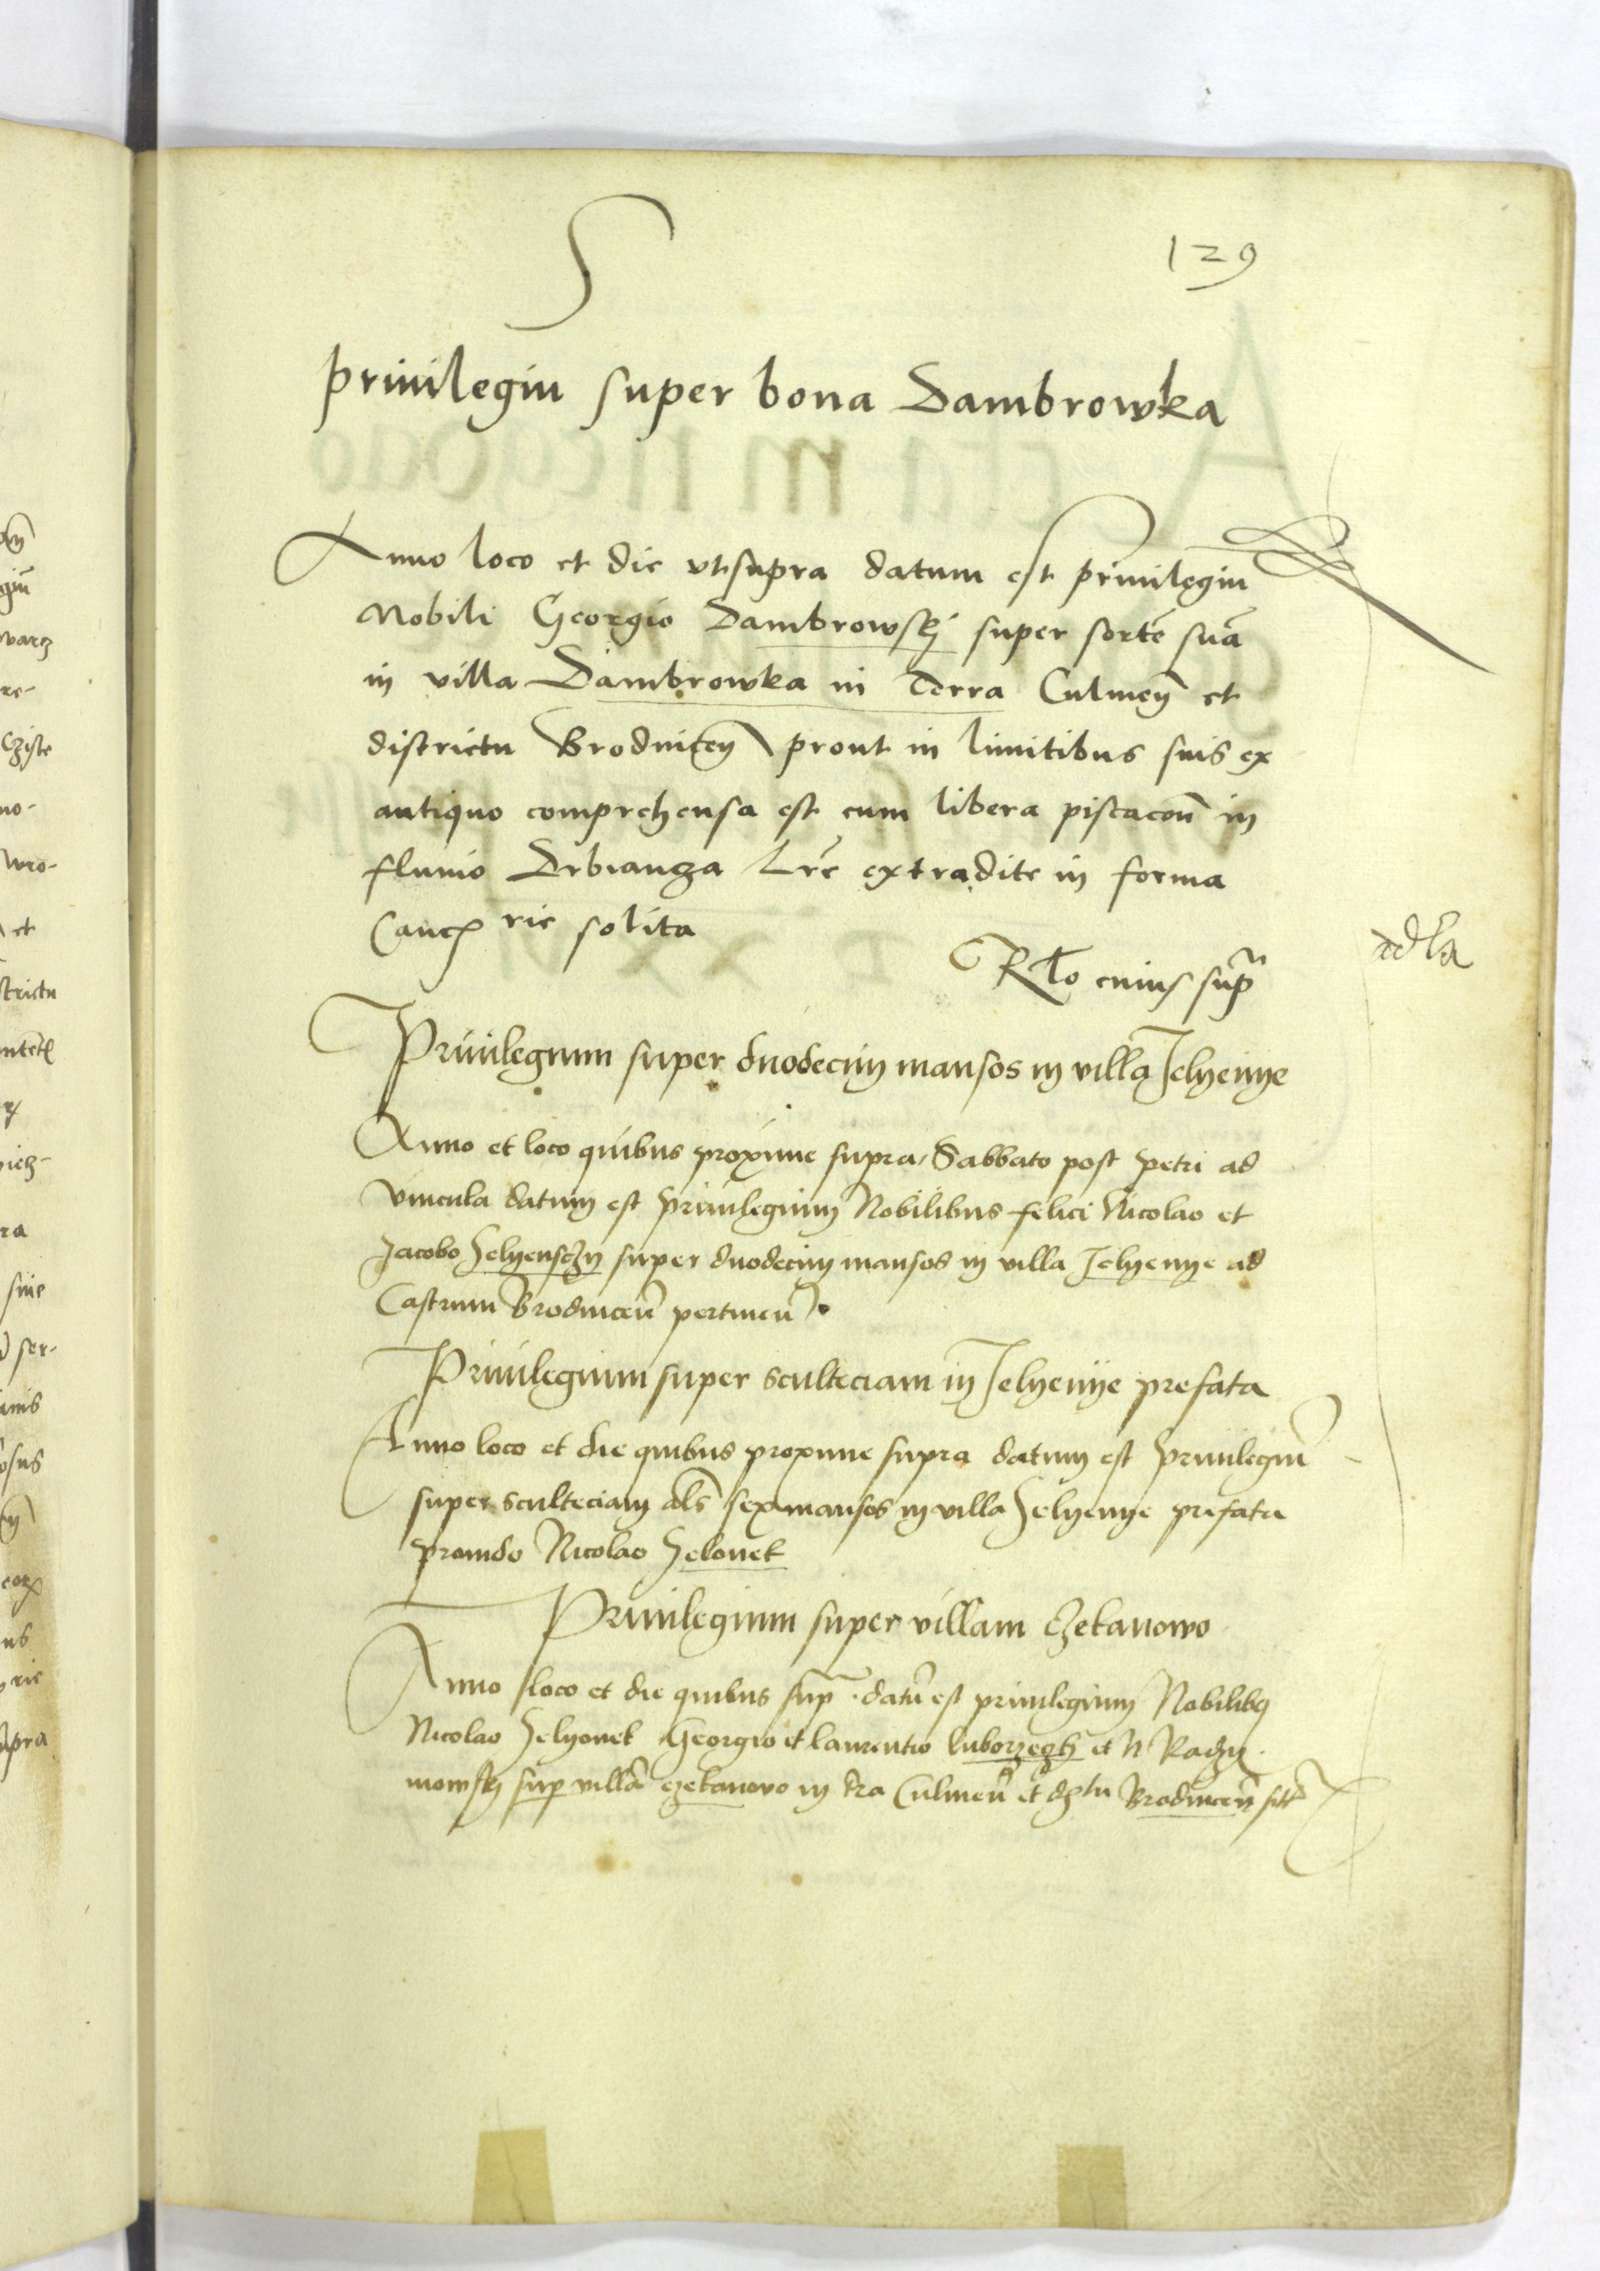 129
Priuilegiu super bona Dambrowka
Anno loco et die vt supra datum est priuilegiu
Nobili Georgio Dambrowskj super sorte sua
in villa Dambrowka in Terra Culmen et
districtu Brodnicen prout in limitibus suis ex
antiquo comprehensa est cum libera piscacoe in
fluuio Drbianza Lre extradite in forma
Canc rie solita
Rlo cuius sup
Priuilegium super duodecim mansos in villa Jelyenye
Anno et loco quibus proxime supra Sabbato post Petri ad
vincula datum est Priuilegium Nobilibus felici Nicolao et
Jacobo Jelyensczy super duodecim mansos in villa Jelyenye ad
Castrum Brodnicen pertinen
Priuilegium super sculteciam in Jelyenye prefata
Anno loco et die quibus proxime supra datum est Priuilegiu
super sculteciam als sex mansos in villa Jelyenye prefata
prouido Nicolao Jelonek
Priuilegium super villam Czekanowo
Anno loco et die quibus sup datu est priuilegium Nobilibq
Nicolao Jelyonek Georgio et laurentio et N Radzy
mowsky sup villa czekanowo in tra Culmen et dztu Brodnicen